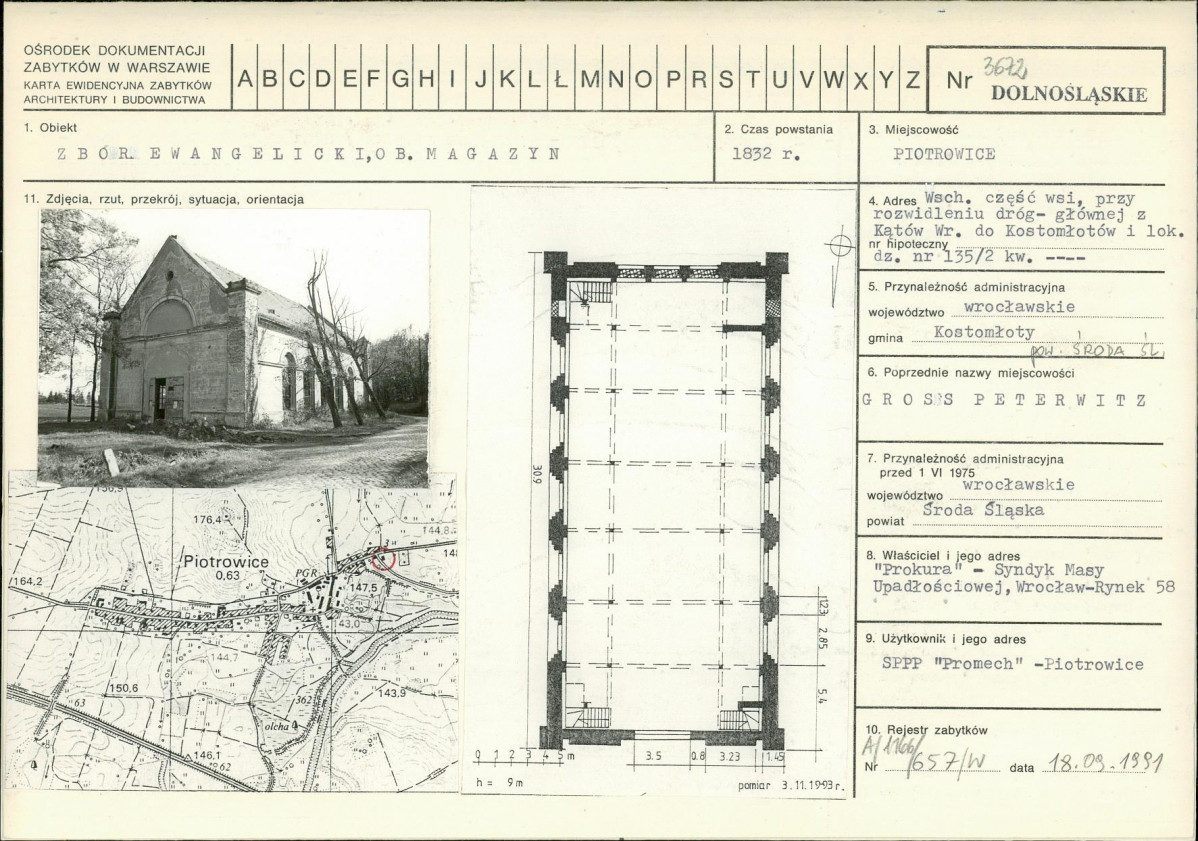 OŚRODEK DOKUMENTACJI
ZABYTKÓW W WARSZAWIE
KARTA EWIDENCYJNA ZABYTKÓW
ARCHITEKTURY I BUDOWNICTWA
A B C D E F G H I J K L Ł M N O P R S T U V W X Y Z
Nr 3672
DOLNOŚLĄSKIE
1. Obiekt
ZBÓR EWANGELICKI, OB. MAGAZYN
2. Czas powstania
1832 r.
3. Miejscowość
PIOTROWICE
4. Adres Wsch. część wsi, przy
rozwidleniu dróg- głównej z
Kątów Wr. do Kostomłotów i lok.
nr hipoteczny
dz. nr 135/2 kw. ----
5. Przynależność administracyjna
województwo wrocławskie
gmina Kostomłoty
pow. ŚRODA ŚL.
6. Poprzednie nazwy miejscowości
GROSS PETERWITZ
7. Przynależność administracyjna
przed 1 VI 1975
województwo wrocławskie
powiat Środa Śląska
8. Właściciel i jego adres
"Prokura" - Syndyk Masy
Upadłościowej, Wrocław-Rynek 58
9. Użytkownik i jego adres
SPPP "Promech" -Piotrowice
10. Rejestr zabytków
A/1166/
Nr 657/W data 18.09.1991
11. Zdjęcia, rzut, przekrój, sytuacja, orientacja
176,4
144,8
Piotrowice
0,63
PGR
147,5
164,2
143,0
144,7
150,6
143,9
362
63
olcha
146,1
62
30.9
123
2.85
5.4
0 1 2 3 4 5 m
3.5 0.8 3.23 1.45
h = 9 m
pomiar 3.11.1993 r.